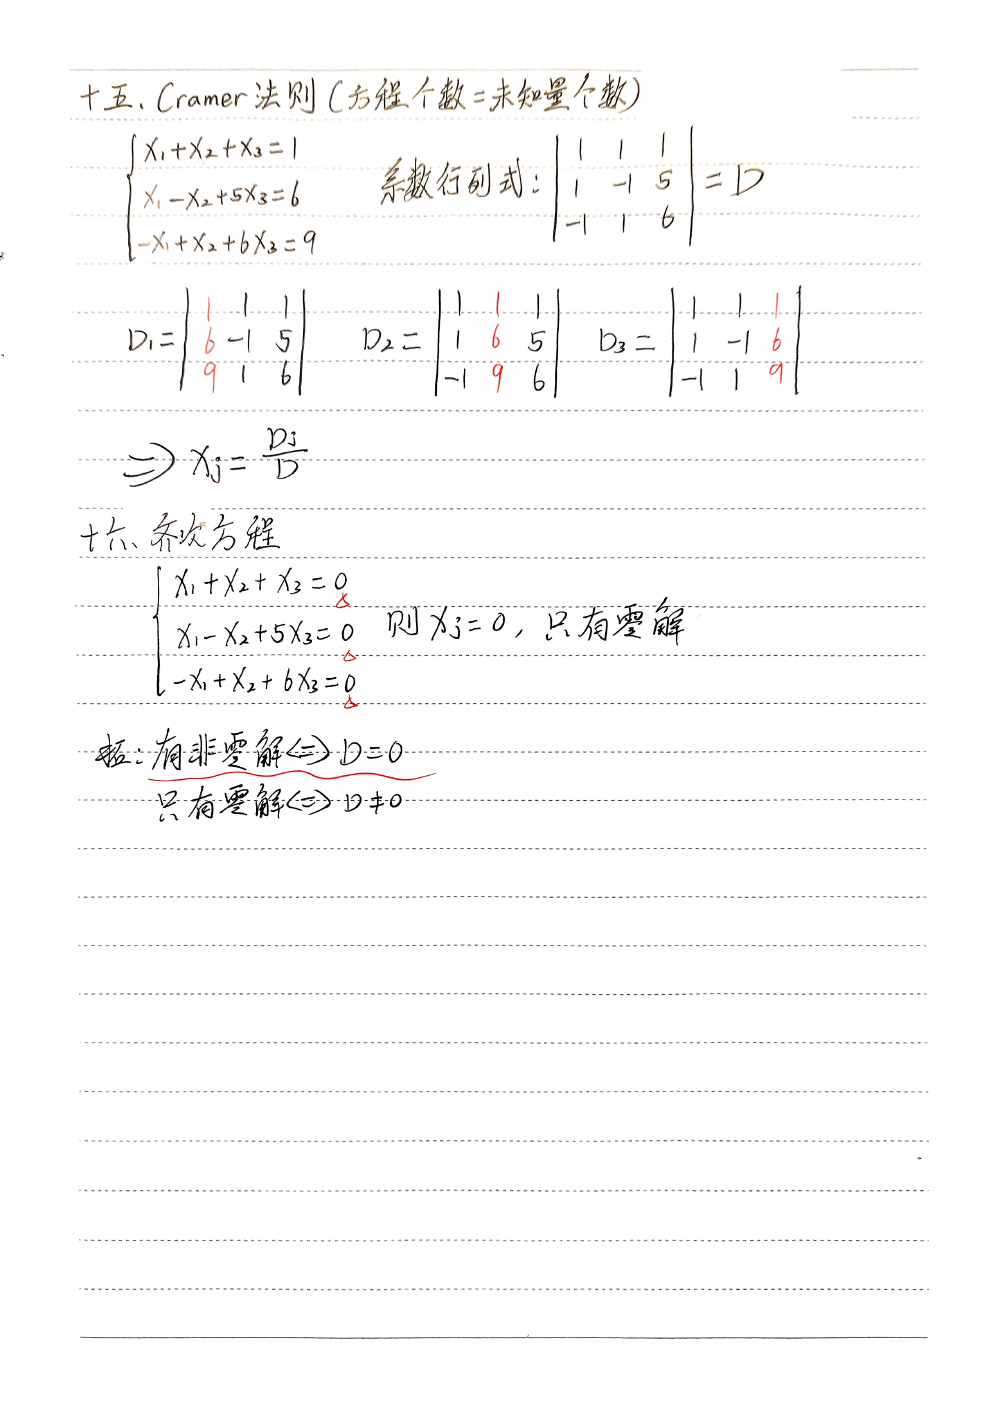 十五、Cramer法则(方程个数=未知量个数)
x₁+x₂+x₃=1
x₁-x₂+5x₃=6
-x₁+x₂+6x₃=9
系数行列式: | 1 1 1 | = D
| 1 -1 5 |
| -1 1 6 |
D₁= | 1 1 1 |
| 6 -1 5 |
| 9 1 6 |
D₂= | 1 1 1 |
| 1 6 5 |
| -1 9 6 |
D₃= | 1 1 1 |
| 1 -1 6 |
| -1 1 9 |
⇒ xⱼ= Dⱼ/D
十六、齐次方程
x₁+x₂+x₃=0
x₁-x₂+5x₃=0
-x₁+x₂+6x₃=0
则xⱼ=0, 只有零解
有非零解⇔D=0
只有零解⇔D≠0